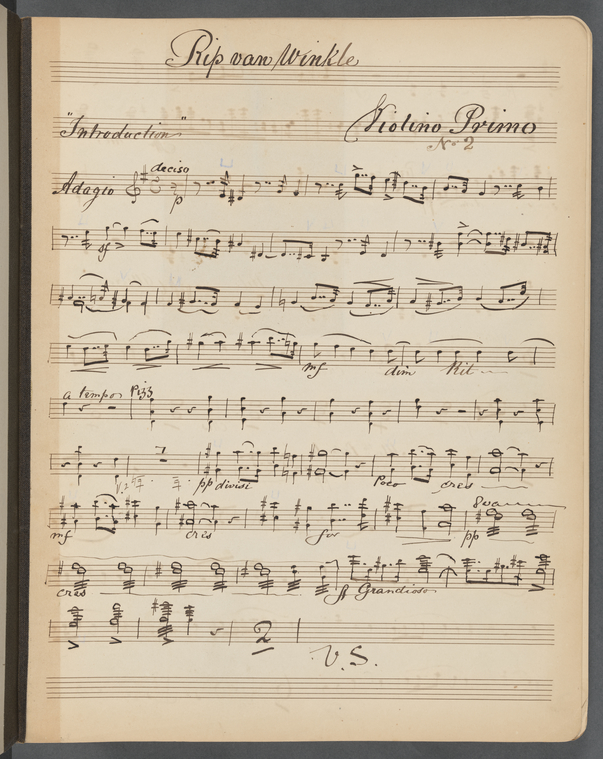 Rip van Winkle
"Introduction" Violino Primo
No 2
Adagio deciso
p
sf
mf dim Rit
a tempo Pizz
7
pp divisi Poco cres
mf cres for pp 8va
cres ff Grandioso
2
V.S.